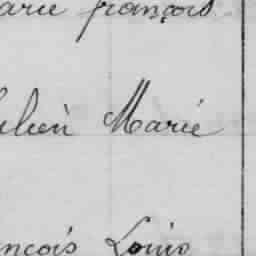 arie françois
ulien Marie
nçois Louis